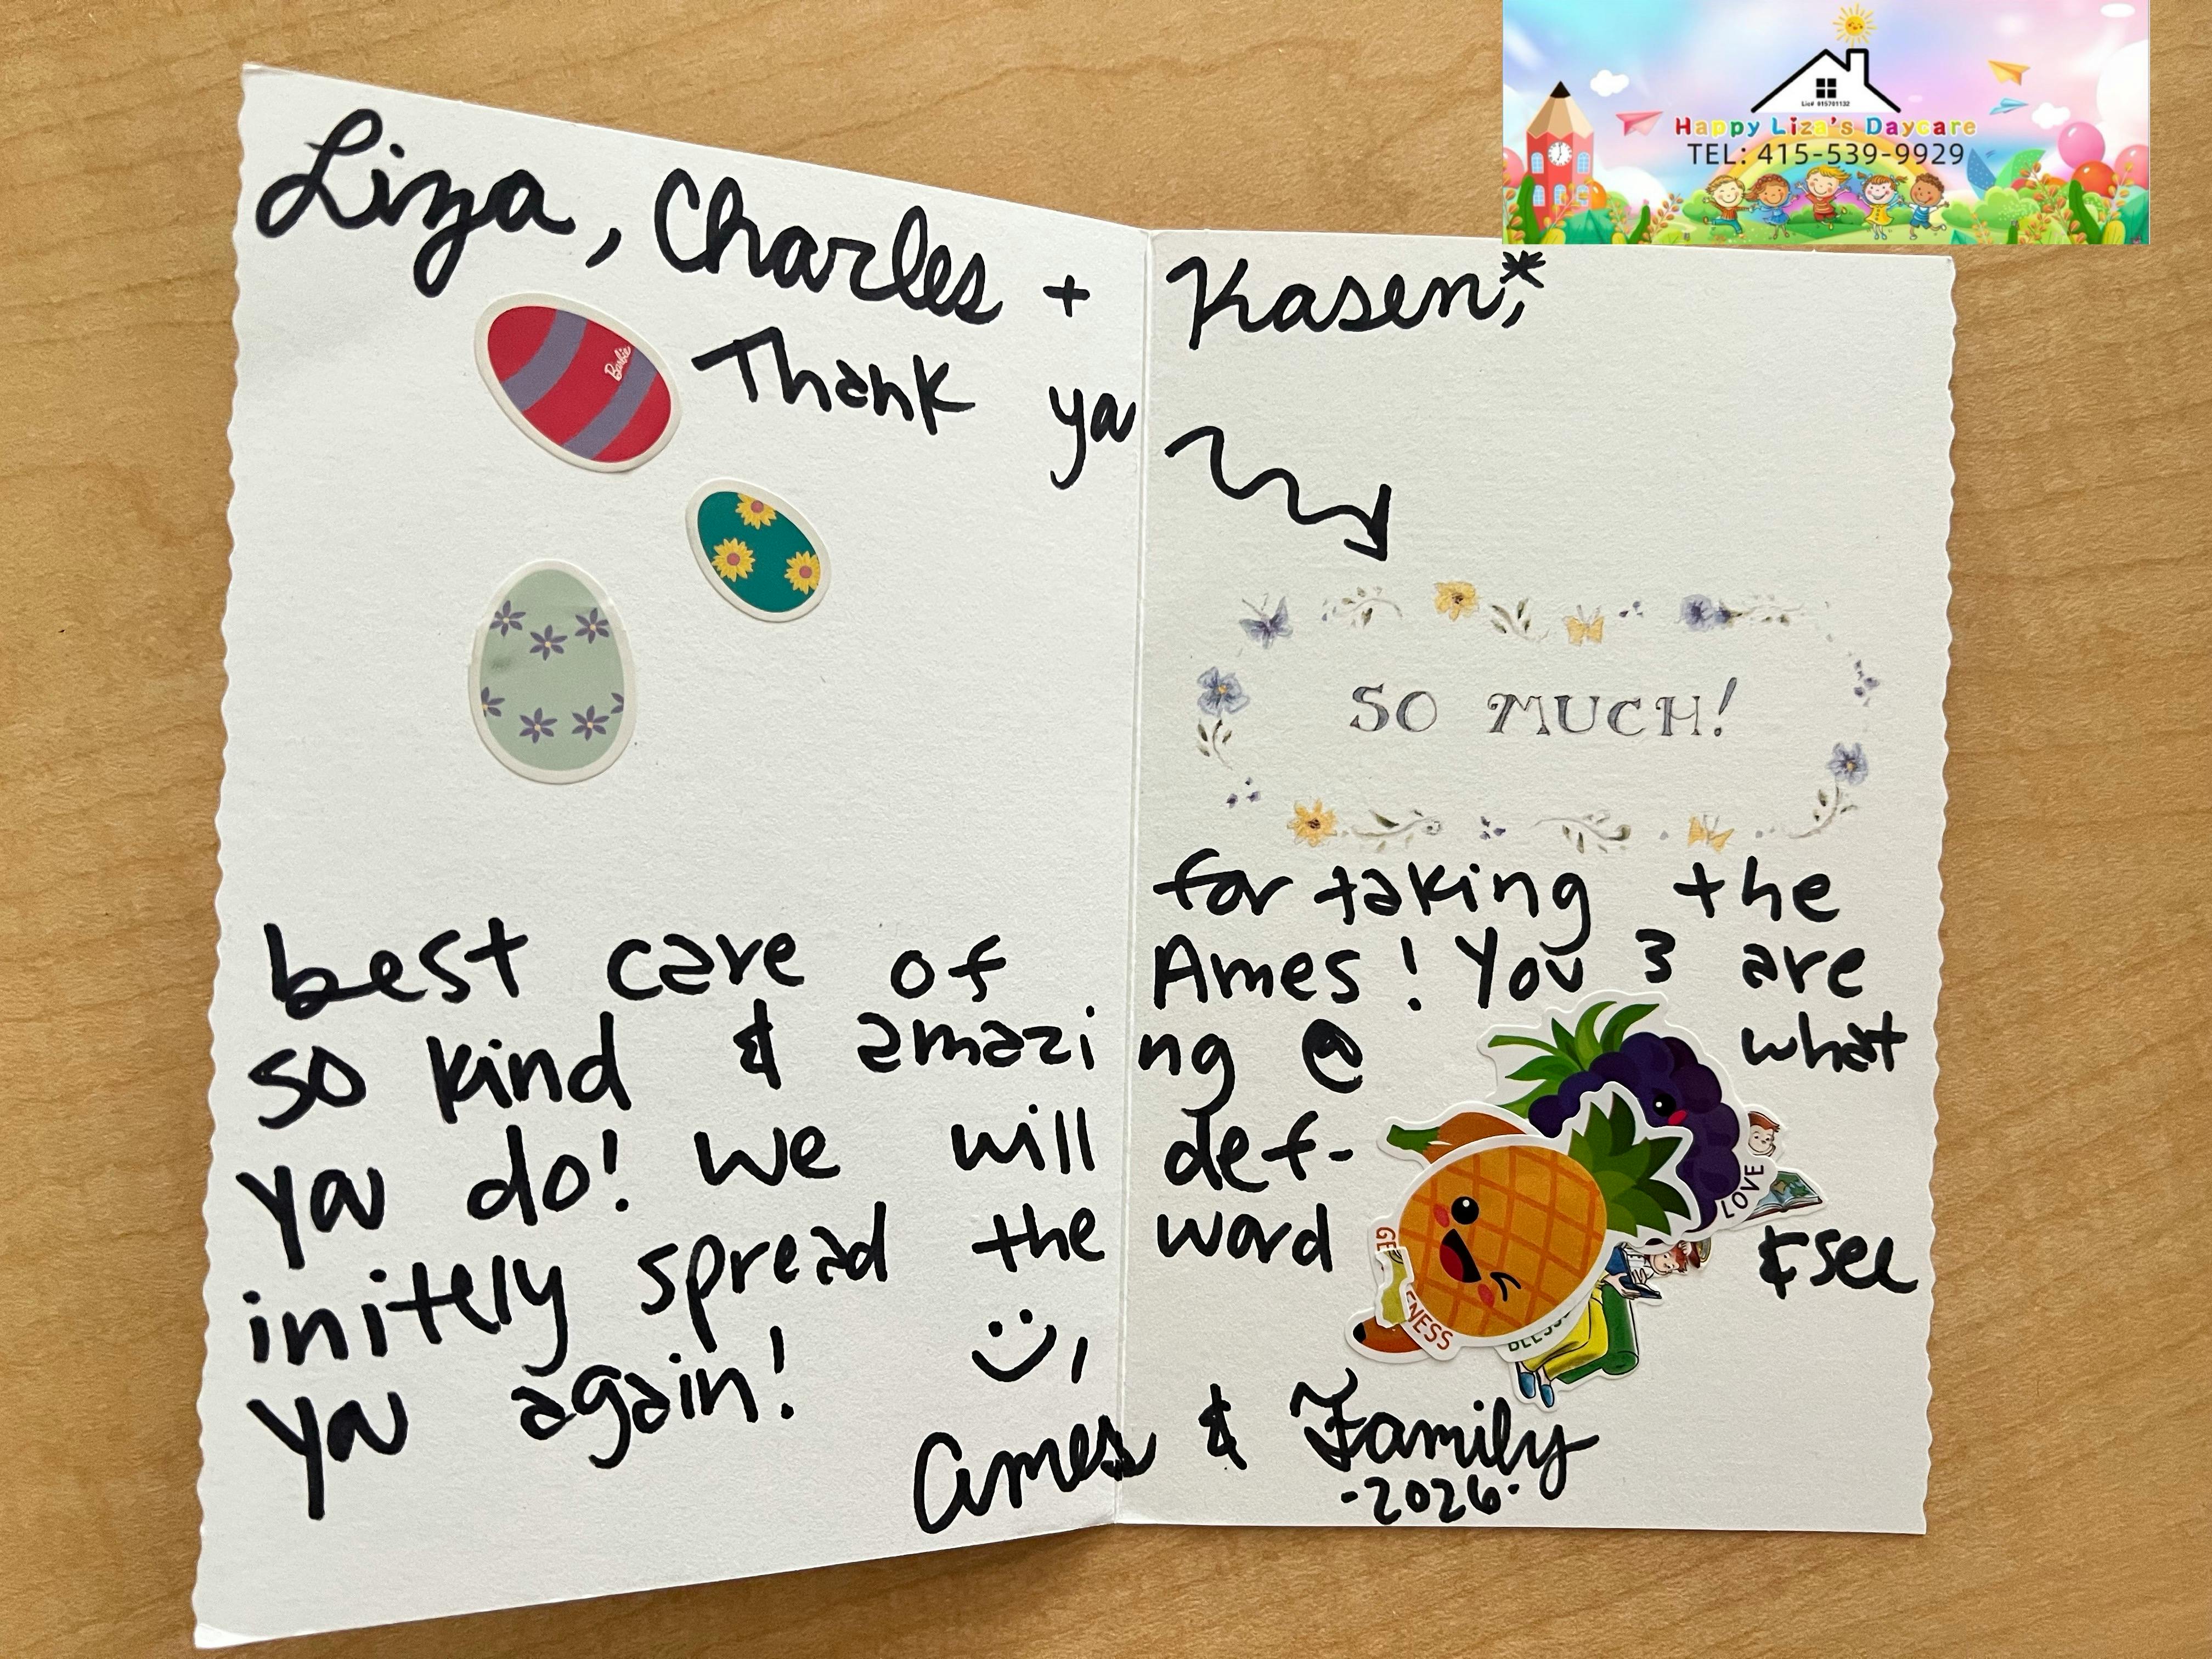 Lic# 015701132
Happy Liza's Daycare
TEL: 415-539-9929
Liza, Charles + Kasen,*
Barbie
Thank you
SO MUCH!
for taking the
best care of Ames! You 3 are
so kind & amazing @ what
you do! We will def-
initely spread the word & see
you again! :),
Ames & Family
-2026-
LOVE
GE
ENESS
BLESS